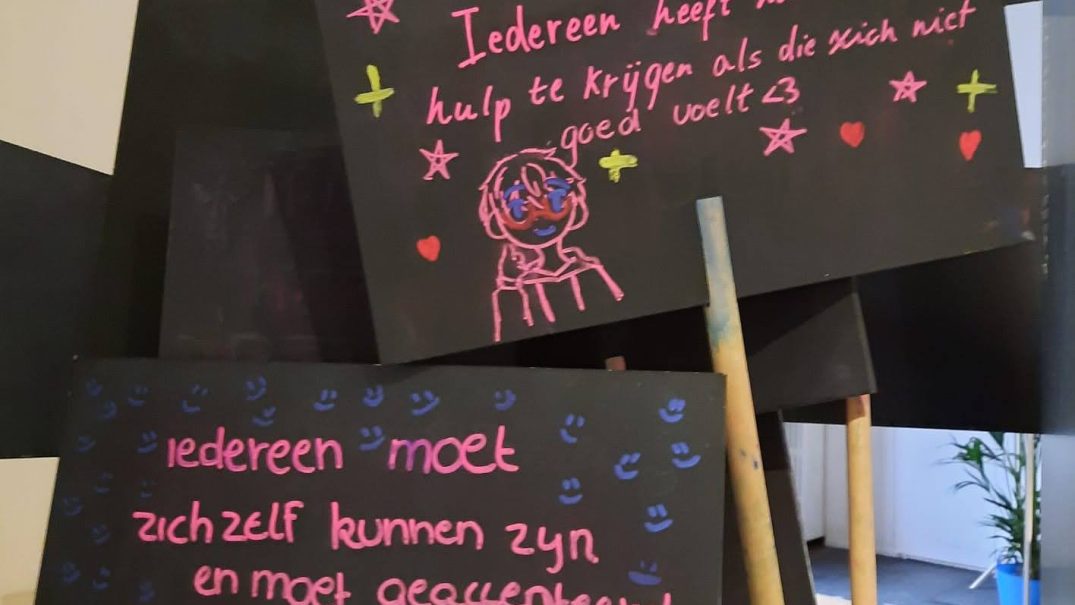 Iedereen heeft
hulp te krijgen als die zich niet
goed voelt <3
iedereen moet
zichzelf kunnen zyn
en moet geaccepteerd